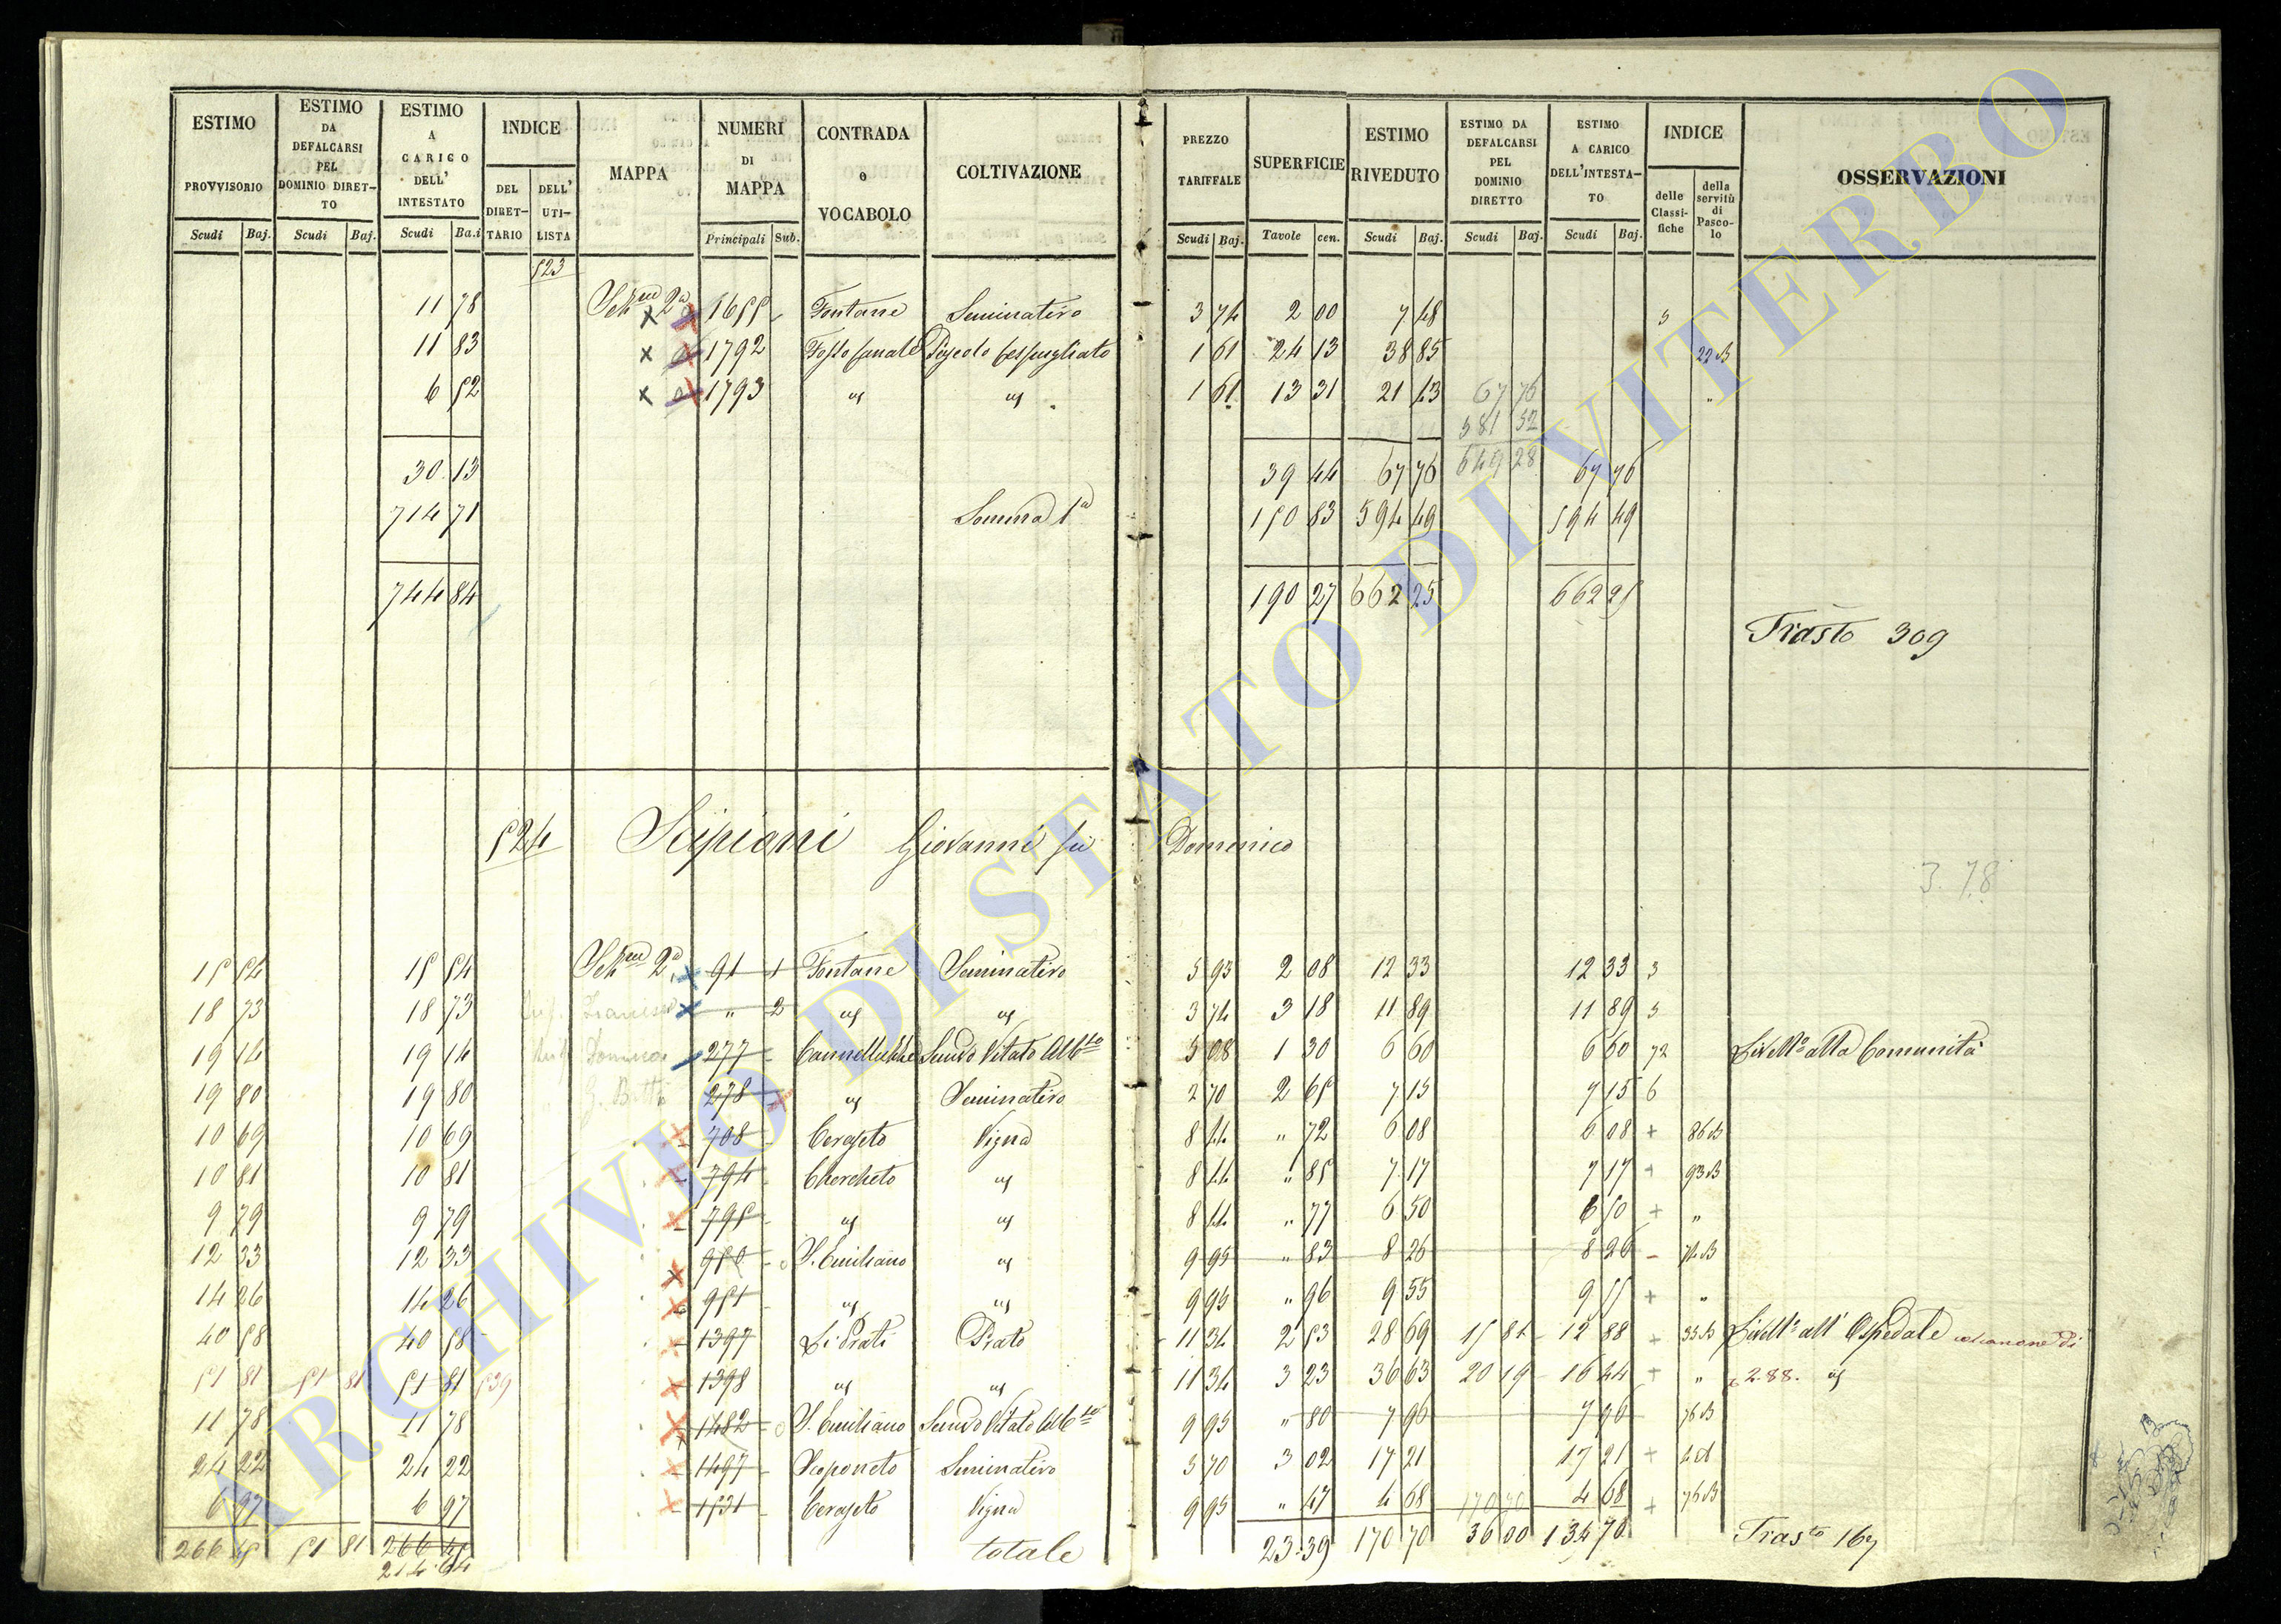 ESTIMO PROVVISORIO | ESTIMO DA DEFALCARSI PEL DOMINIO DIRET-TO | ESTIMO A CARICO DELL' INTESTATO | INDICE | MAPPA | NUMERI DI MAPPA | CONTRADA o VOCABOLO | COLTIVAZIONE | PREZZO TARIFFALE | SUPERFICIE | ESTIMO RIVEDUTO | ESTIMO DA DEFALCARSI PEL DOMINIO DIRETTO | ESTIMO A CARICO DELL'INTESTA-TO | INDICE | OSSERVAZIONI
DEL DIRET-TARIO | DELL' UTI-LISTA | delle Classi-fiche | della servitù di Pasco-lo
Scudi | Baj. | Scudi | Baj. | Scudi | Ba.i | Principali | Sub. | Scudi | Baj. | Tavole | cen. | Scudi | Baj. | Scudi | Baj. | Scudi | Baj.
523
11 78 | 2a | 1655 | Fontane | Seminativo | 3 74 | 2 00 | 7 48 | 5
11 83 | 1792 | Fosso canale | Pascolo cespugliato | 1 61 | 24 13 | 38 85 | 22 B
6 52 | 1793 | " | " | 1 61 | 13 31 | 21 43 | 67 76 | "
581 52
30 13 | 39 44 | 67 76 | 649 28 | 67 76
714 71 | Somma 1a | 150 83 | 594 49 | 594 49
744 84 | 190 27 | 662 25 | 662 25
Trasto 309
524 Scipioni Giovanni fu Domenico
3.78
15 54 | 15 54 | 2a | 91 | 1 | Fontane | Seminativo | 5 93 | 2 08 | 12 33 | 12 33 | 3
18 73 | 18 73 | " | 2 | " | " | 3 74 | 3 18 | 11 89 | 11 89 | 5
19 14 | 19 14 | 277 | Seminvo Vitato Albto | 5 08 | 1 30 | 6 60 | 6 60 | 72 | Livello alla Comunità
19 80 | 19 80 | 278 | " | Seminativo | 2 70 | 2 65 | 7 15 | 7 15 | 6
10 69 | 10 69 | 708 | Ceraseto | Vigna | 8 44 | " 72 | 6 08 | 6 08 | + | 86 B
10 81 | 10 81 | 794 | Chercheto | " | 8 44 | " 85 | 7 17 | 7 17 | + | 93 B
9 79 | 9 79 | 795 | " | " | 8 44 | " 77 | 6 50 | 6 50 | + | "
12 33 | 12 33 | 950 | S. Emiliano | " | 9 95 | " 83 | 8 26 | 8 26 | - | 76 B
14 26 | 14 26 | 951 | " | " | 9 95 | " 96 | 9 55 | 9 55 | + | "
40 58 | 40 58 | 1397 | Li Prati | Prato | 11 34 | 2 53 | 28 69 | 15 81 | 12 88 | + | 33 B | Livello all' Ospedale col canone di
51 81 | 51 81 | 51 81 | 539 | 1398 | " | " | 11 34 | 3 23 | 36 63 | 20 19 | 16 44 | + | " | 2.88. "
11 78 | 11 78 | 1482 | S. Emiliano | Seminvo Vitato Albto | 9 95 | " 80 | 7 96 | 7 96 | 76 B
24 22 | 24 22 | 1497 | Scoponeto | Seminativo | 5 70 | 3 02 | 17 21 | 17 21 | +
6 97 | 6 97 | 1531 | Ceraseto | Vigna | 9 95 | " 47 | 4 68 | 170 70 | 4 68 | + | 76 B
266 45 | 51 81 | 266 45 | totale | 23.39 | 170 70 | 36 00 | 134 70 | Trasto 167
214.64
ARCHIVIO DI STATO DI VITERBO